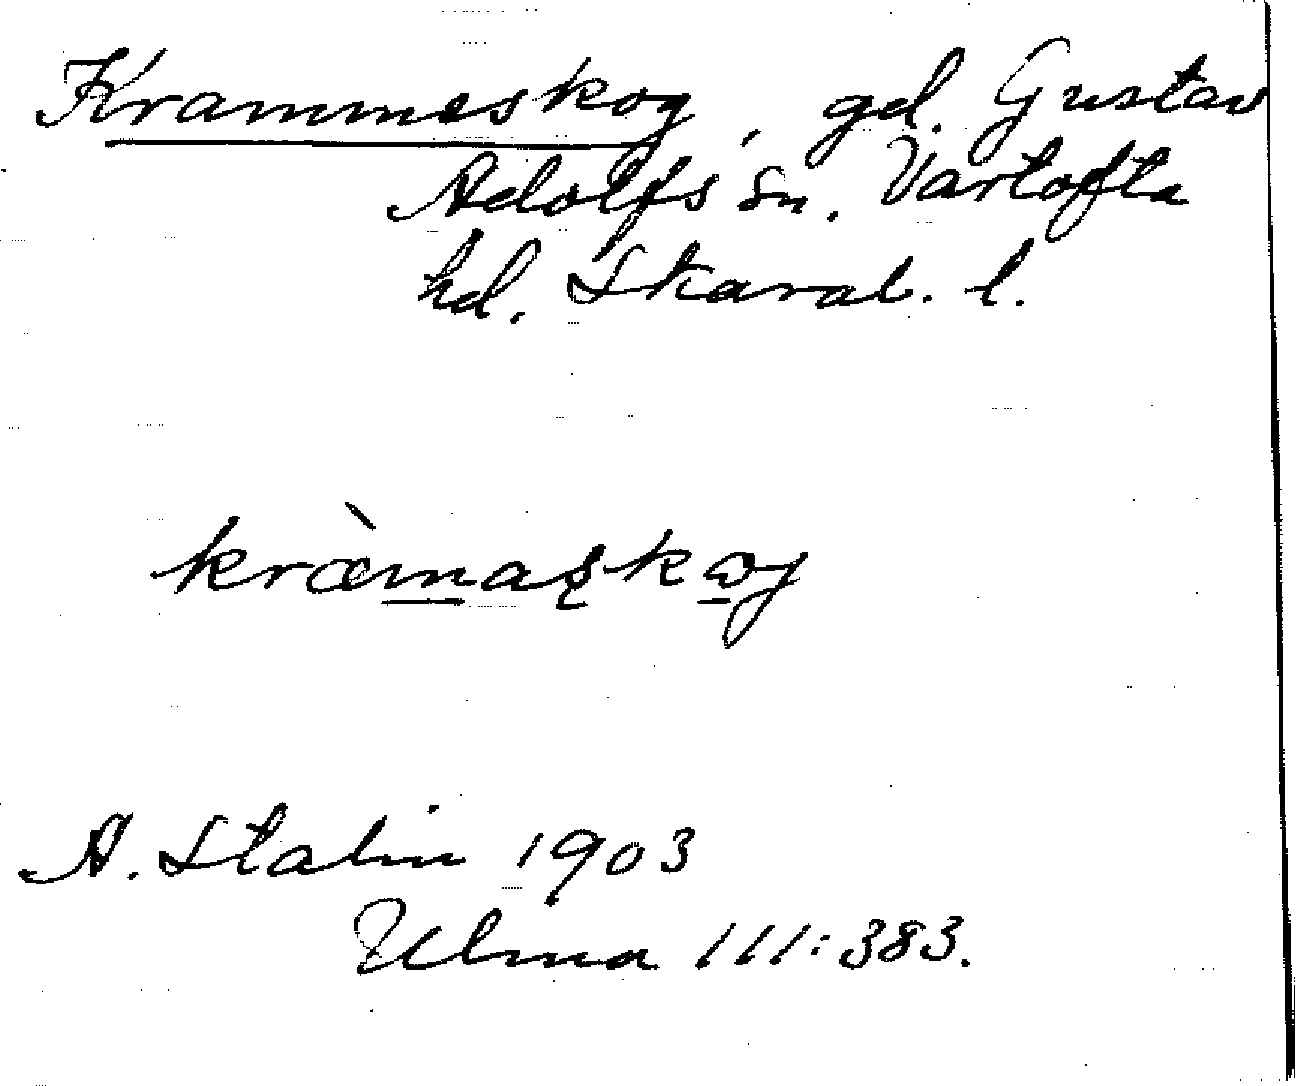 Krammeskog, gd. Gustav
Adolfs sn. Vartofta
hd. Skarab. l.
kræ̀maskoj
A. Stalin 1903
Ulma 111:383.